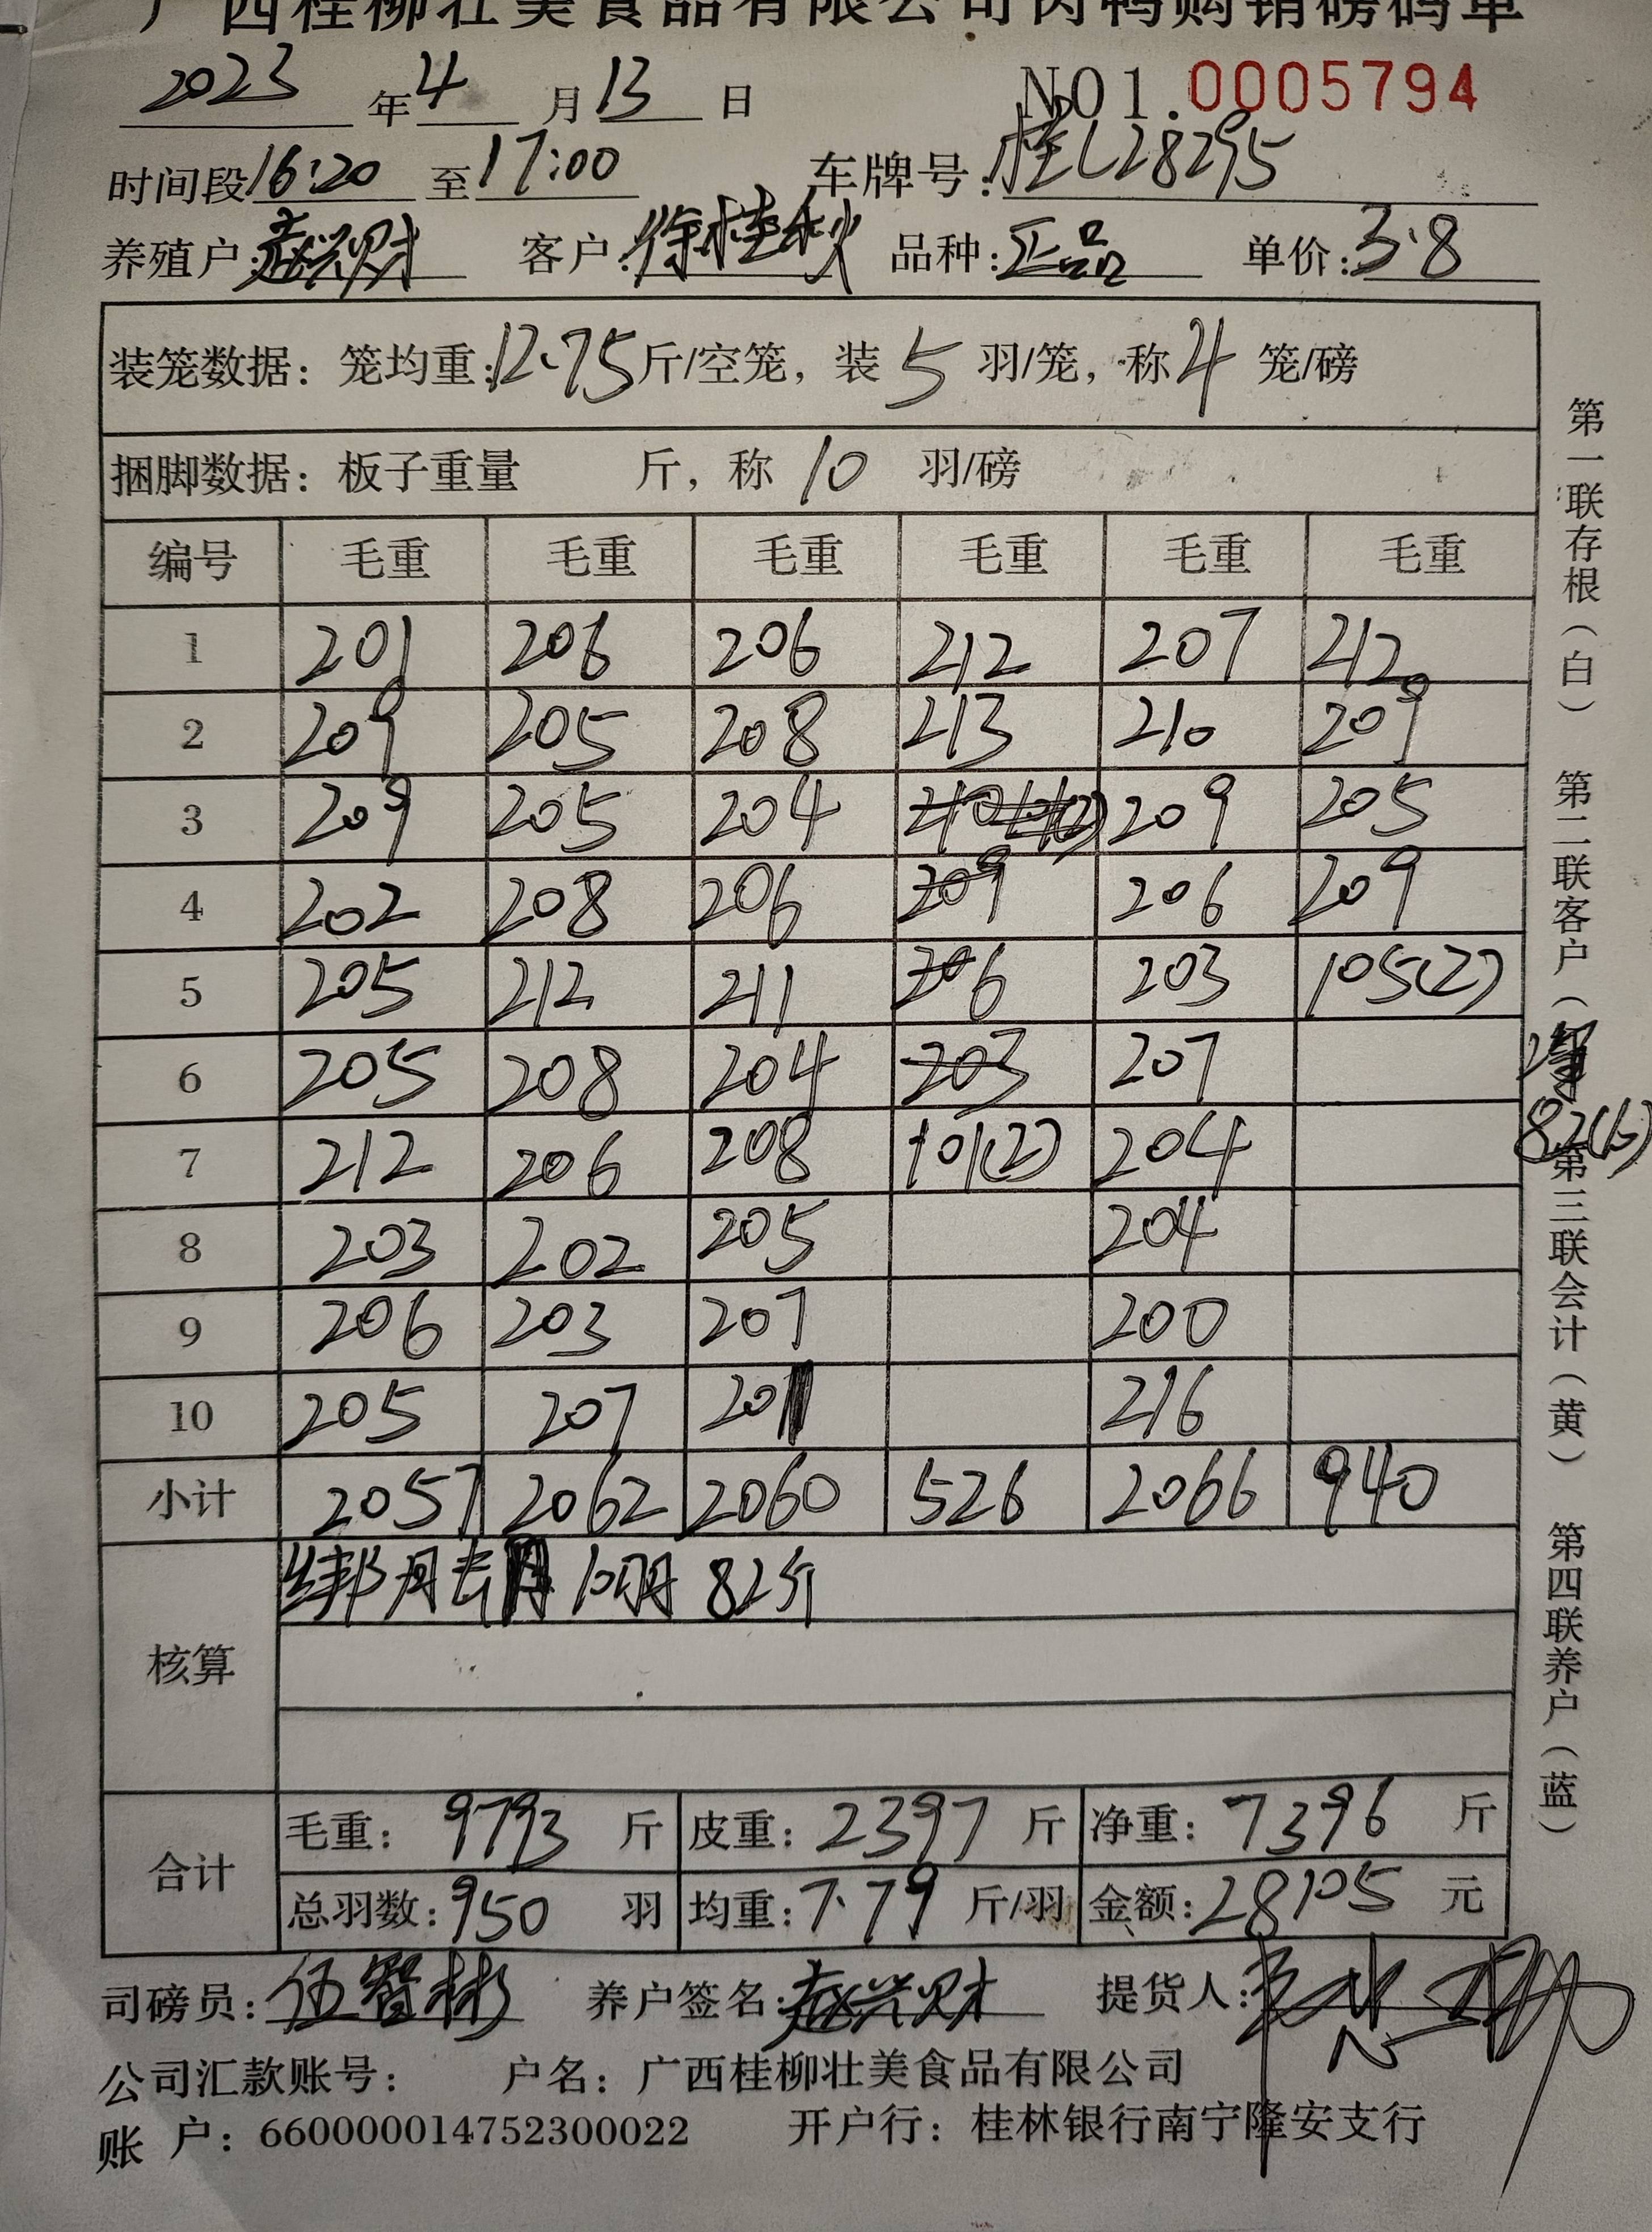 广西桂柳壮美食品有限公司肉鸭购销磅码单
2023 年 4 月 13 日 NO1.0005794
时间段 16:20 至 17:00 车牌号: 桂L28295
养殖户: 赵兴财 客户: 徐桂秋 品种: 正品 单价: 3.8
装笼数据: 笼均重: 12.75 斤/空笼, 装 5 羽/笼, 称 4 笼/磅
捆脚数据: 板子重量 斤, 称 10 羽/磅
编号 毛重 毛重 毛重 毛重 毛重 毛重
1 201 206 206 212 207 212
2 209 205 208 213 210 209
3 209 205 204 209 205
4 202 208 206 209 206 209
5 205 212 211 206 203 105(2)
6 205 208 204 203 207
7 212 206 208 101(2) 204
8 203 202 205 204
9 206 203 207 200
10 205 207 201 216
小计 2057 2062 2060 526 2066 940
核算 绑 10 82斤
合计 毛重: 9793 斤 皮重: 2397 斤 净重: 7396 斤
总羽数: 950 羽 均重: 7.79 斤/羽 金额: 28105 元
司磅员: 伍智彬 养户签名: 赵兴财 提货人:
公司汇款账号: 户名: 广西桂柳壮美食品有限公司
账 户: 660000014752300022 开户行: 桂林银行南宁隆安支行
第一联存根(白) 第二联客户( 第三联会计(黄) 第四联养户(蓝)